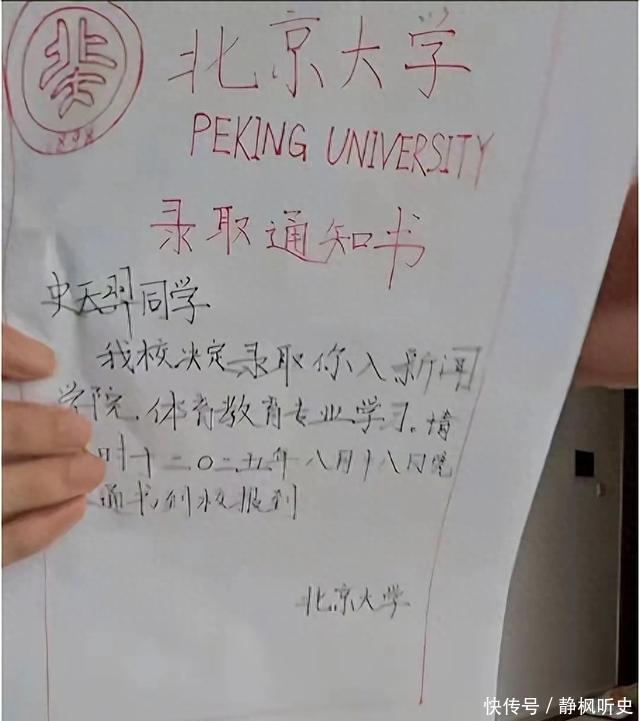 1898
北京大学
PEKING UNIVERSITY
录取通知书
史天羿同学
我校决定录取你入新闻
学院.体育教育专业学习.请
时于二〇二五年八月十八日凭
通书到校报到
北京大学
快传号/静枫听史